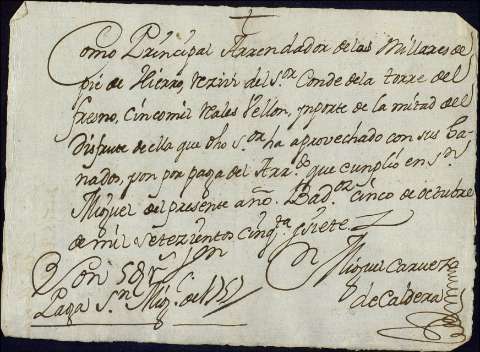 Como Principal Arrendador de las Millares de
pie de Hierro, Rezivi del S.or Conde de la torre del
fresno, Cinco mil Reales Vellon, ymporte de la mitad del
Disfrute de ella que dho S.or ha aprovechado con sus Ga-
nados, y son por paga del Arr.do que cumplio en S.n
Miguel del presente año. Bad.oz Cinco de octubre
de mil setezientos cinq.ta y siete.
Son 5U r.s v.n
Paga S.n Mig.l de 1757
Miguel
de Caldera